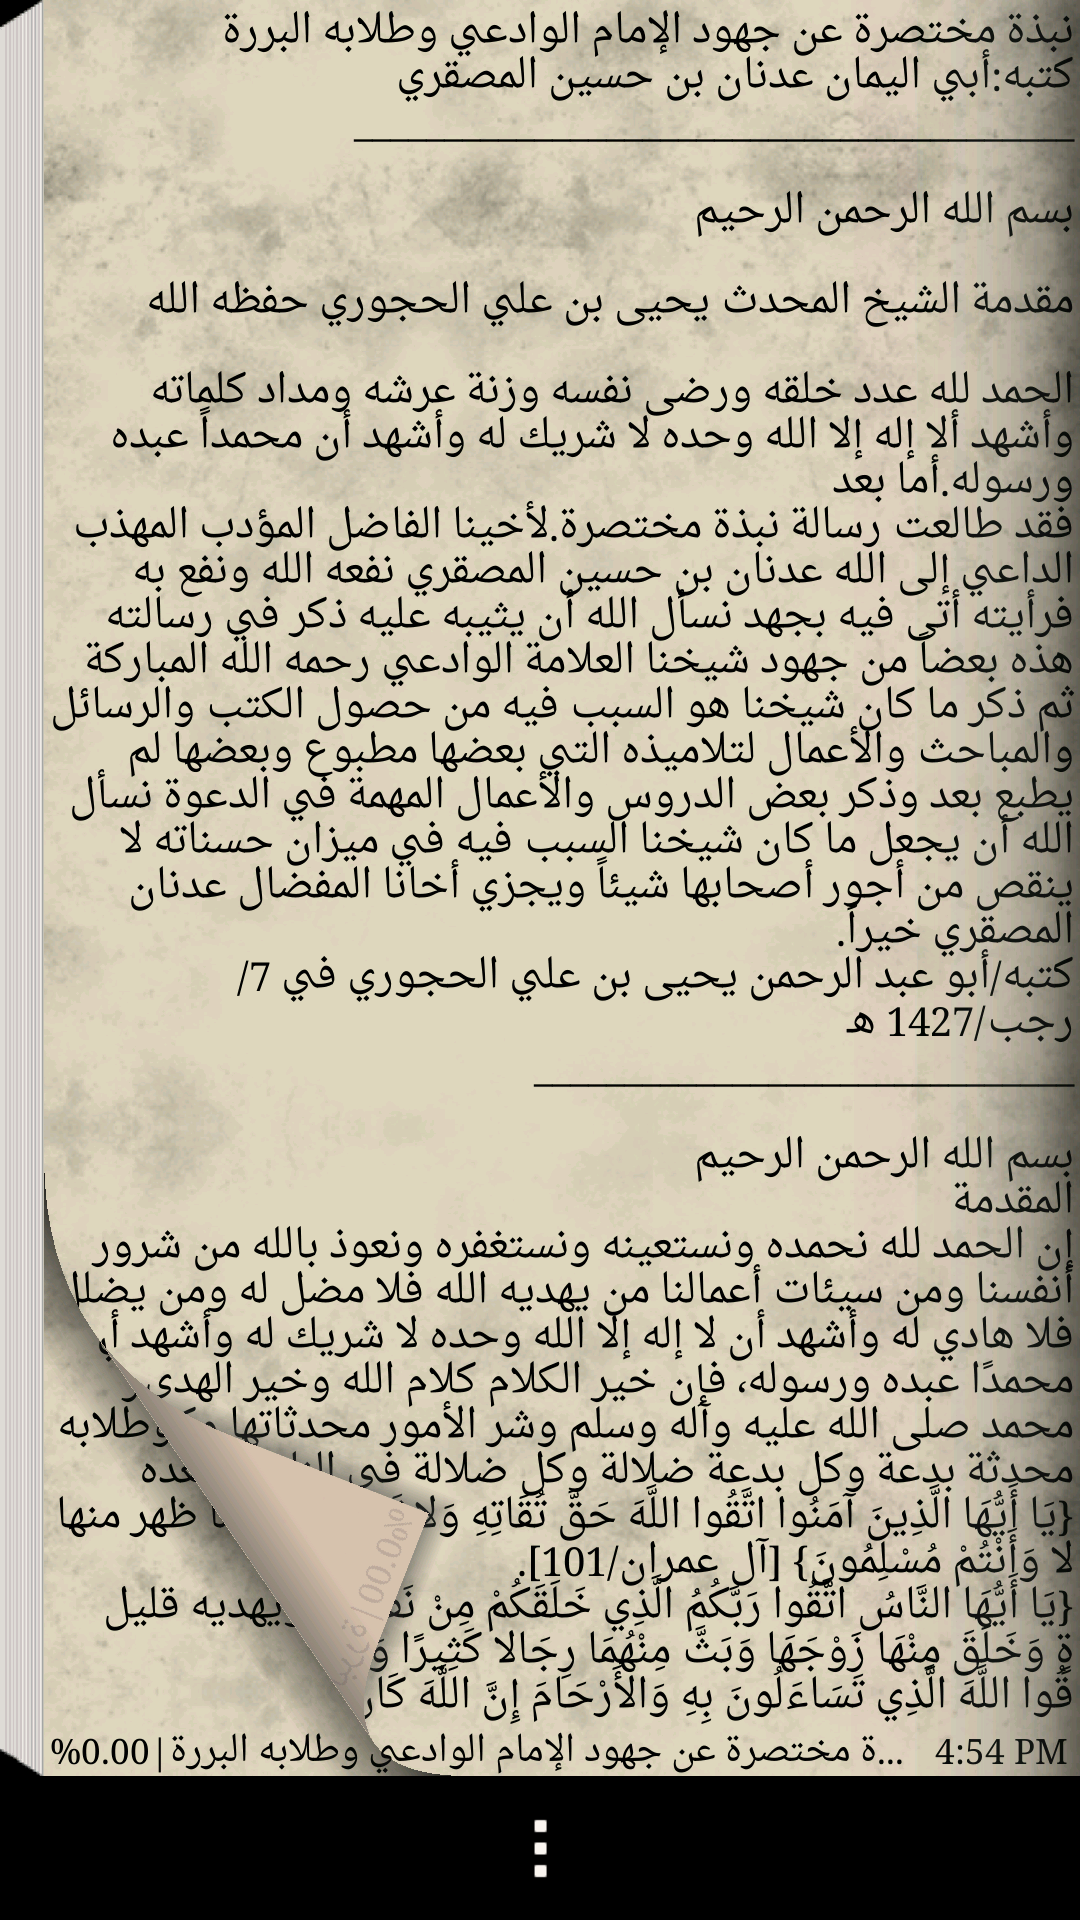 نبذة مختصرة عن جهود الإمام الوادعي وطلابه البررة
كتبه:أبي اليمان عدنان بن حسين المصقري
بسم الله الرحمن الرحيم
مقدمة الشيخ المحدث يحيى بن علي الحجوري حفظه الله
الحمد لله عدد خلقه ورضى نفسه وزنة عرشه ومداد كلماته
وأشهد ألا إله إلا الله وحده لا شريك له وأشهد أن محمداً عبده
ورسوله.أما بعد
فقد طالعت رسالة نبذة مختصرة.لأخينا الفاضل المؤدب المهذب
الداعي إلى الله عدنان بن حسين المصقري نفعه الله ونفع به
فرأيته أتى فيه بجهد نسأل الله أن يثيبه عليه ذكر في رسالته
هذه بعضاً من جهود شيخنا العلامة الوادعي رحمه الله المباركة
ثم ذكر ما كان شيخنا هو السبب فيه من حصول الكتب والرسائل
والمباحث والأعمال لتلاميذه التي بعضها مطبوع وبعضها لم
يطبع بعد وذكر بعض الدروس والأعمال المهمة في الدعوة نسأل
الله أن يجعل ما كان شيخنا السبب فيه في ميزان حسناته لا
ينقص من أجور أصحابها شيئاً ويجزي أخانا المفضال عدنان
المصقري خيراً.
كتبه/أبو عبد الرحمن يحيى بن علي الحجوري في 7/
رجب/1427 هـ
بسم الله الرحمن الرحيم
المقدمة
إن الحمد لله نحمده ونستعينه ونستغفره ونعوذ بالله من شرور
أنفسنا ومن سيئات أعمالنا من يهديه الله فلا مضل له ومن يضلل
فلا هادي له وأشهد أن لا إله إلا الله وحده لا شريك له وأشهد
محمدًا عبده ورسوله، فإن خير الكلام كلام الله وخير الهدي
محمد صلى الله عليه وآله وسلم وشر الأمور محدثاتها وطلابه
محدثة بدعة وكل بدعة ضلالة وكل ضلالة في
{يَا أَيُّهَا الَّذِينَ آمَنُوا اتَّقُوا اللَّهَ حَقَّ تُقَاتِهِ ظهر منها
لا وَأَنْتُمْ مُسْلِمُونَ} [آل عمران/101].
{يَا أَيُّهَا النَّاسُ اتَّقُوا رَبَّكُمُ الَّذِي خَلَقَكُمْ مِنْ ويهديه قليل
ةٍ وَخَلَقَ مِنْهَا زَوْجَهَا وَبَثَّ مِنْهُمَا رِجَالا كَثِيرًا
قُوا اللَّهَ الَّذِي تَسَاءَلُونَ بِهِ وَالأَرْحَامَ إِنَّ اللَّهَ
4:54 PM ...ة مختصرة عن جهود الإمام الوادعي وطلابه البررة|0.00%